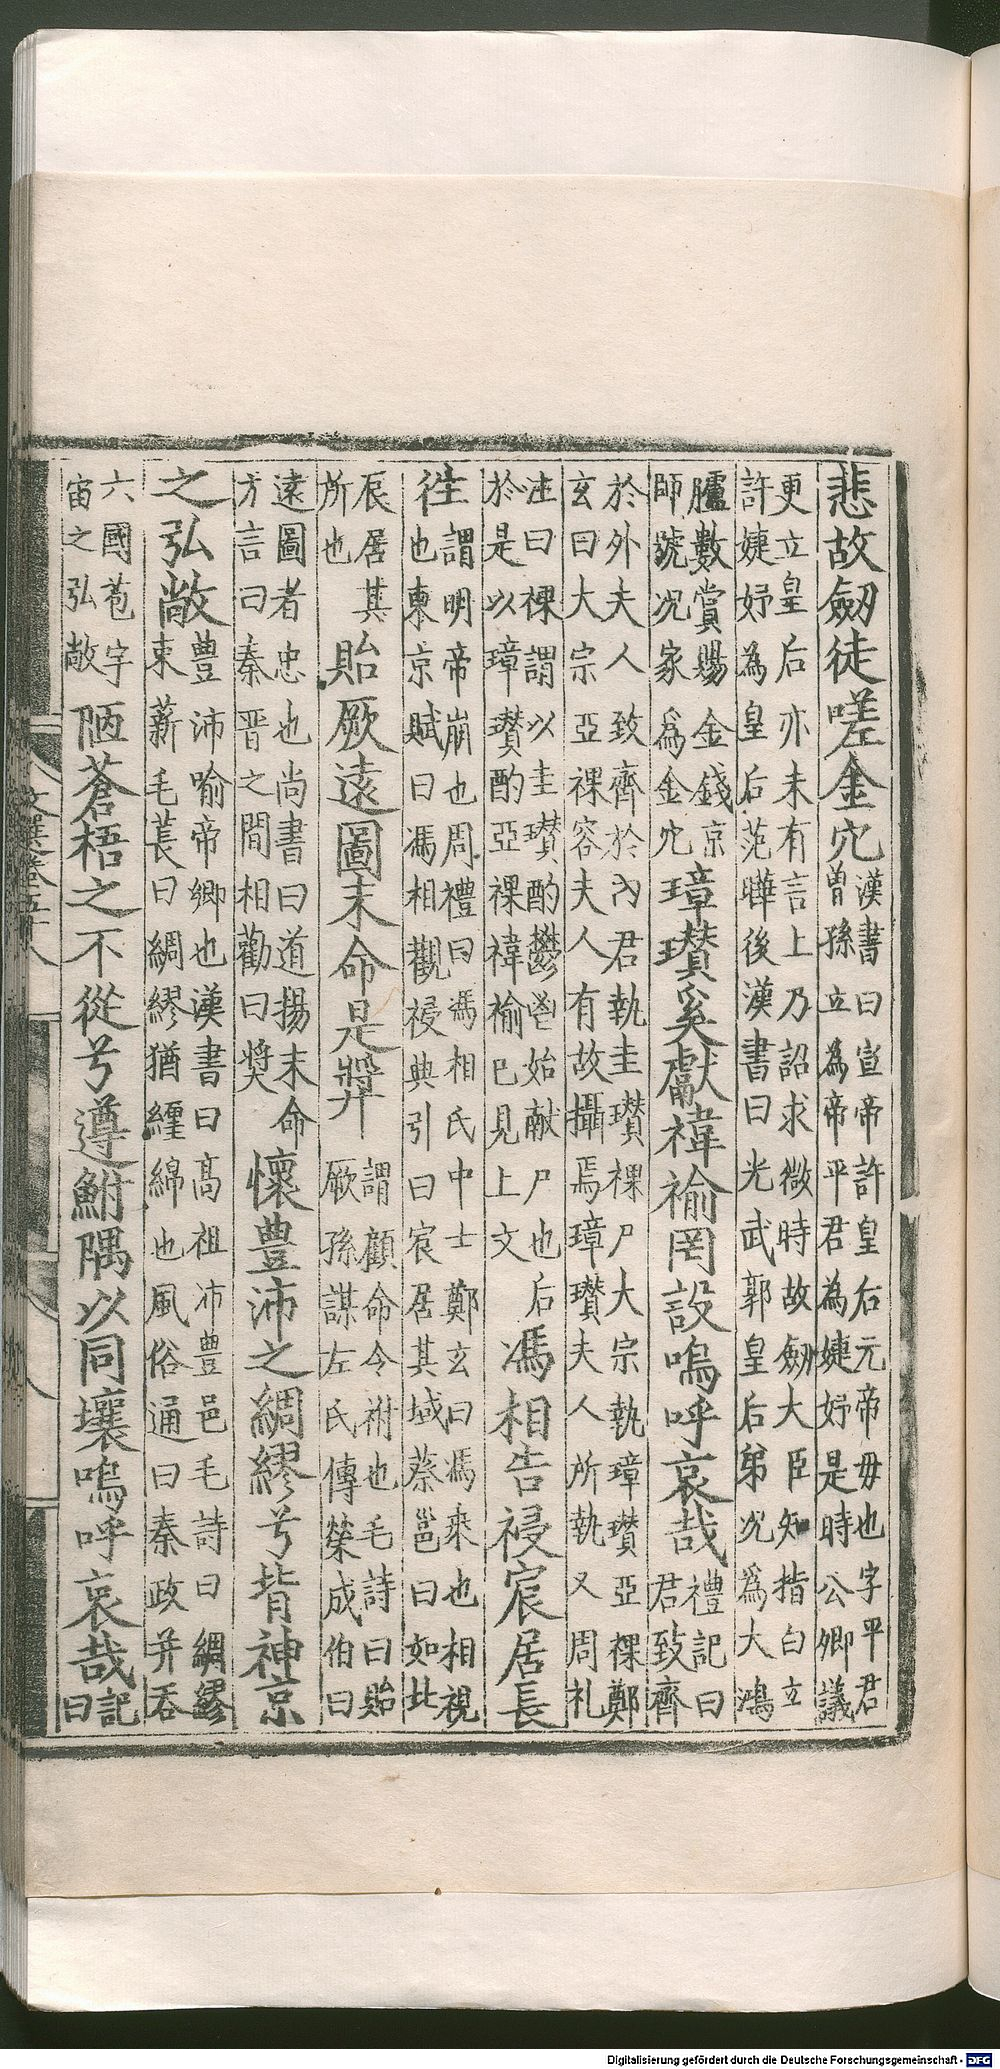 悲故劒徒嗟金穴漢書曰宣帝許皇后元帝毋也字平君
曾孫立為帝平君為婕妤是時公卿議
更立皇后亦未有言上乃詔求微時故劒大臣知指白立
許婕妤為皇后范曄後漢書曰光武郭皇后弟况為大鴻
臚數賞賜金錢京
師號况家為金穴璋瓚奚獻禕褕罔設嗚呼哀哉禮記曰
君致齊
於外夫人致齊於内君執圭瓚祼尸大宗執璋瓚亞祼鄭
玄曰大宗亞祼容夫人有故攝焉璋瓚夫人所執又周礼
注曰祼謂以圭瓚酌鬱鬯始献尸也后
於是以璋瓚酌亞祼禕褕已見上文馮相告祲宸居長
徃謂明帝崩也周禮曰馮相氏中士鄭玄曰馮乘也相視
也東京賦曰馮相觀祲典引曰宸居其域蔡邕曰如北
辰居其
所也貽厥遠圖末命是奬謂顧命令祔也毛詩曰貽
厥孫謀左氏傳榮成伯曰
遠圖者忠也尚書曰道揚末命
方言曰秦晉之間相勸曰奬懷豊沛之綢繆兮背神京
之弘敞豊沛喻帝鄉也漢書曰高祖沛豊邑毛詩曰綢繆
束薪毛萇曰綢繆猶纏綿也風俗通曰秦政并吞
六國苞宇
宙之弘敞陋蒼梧之不從兮遵鮒隅以同壤嗚呼哀哉記
曰
Digitalisierung gefördert durch die Deutsche Forschungsgemeinschaft - DFG